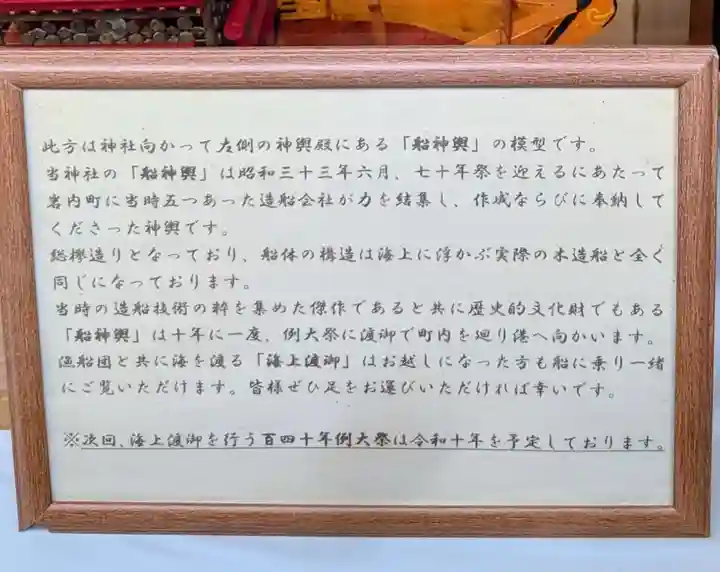 此方は神社向かって左側の神輿殿にある「船神輿」の模型です。
当神社の「船神輿」は昭和三十三年六月、七十年祭を迎えるにあたって
岩内町に当時五つあった造船会社が力を結集し、作成ならびに奉納して
くださった神輿です。
総欅造りとなっており、船体の構造は海上に浮かぶ実際の木造船と全く
同じになっております。
当時の造船技術の粋を集めた傑作であると共に歴史的文化財でもある
「船神輿」は十年に一度、例大祭に渡御で町内を廻り港へ向かいます。
漁船団と共に海を渡る「海上渡御」はお越しになった方も船に乗り一緒
にご覧いただけます。皆様ぜひ足をお運びいただければ幸いです。
※次回、海上渡御を行う百四十年例大祭は令和十年を予定しております。